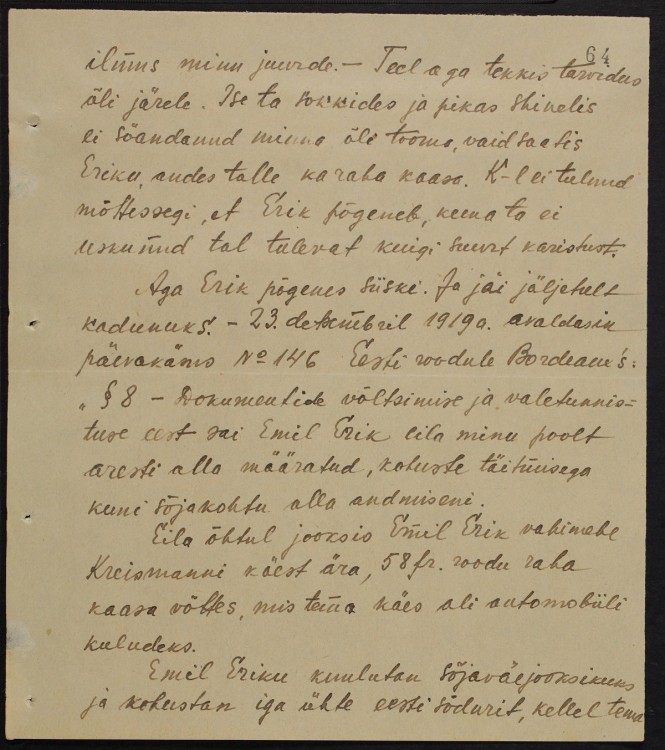 64
ilmus minu juurde. — Teel aga tekkis tarvidus
õli järele. Ise ta sokkides ja pikas shinelis
ei söandanud minna õli tooma, vaid saatis
Eriku, andes talle ka raha kaasa. K-l ei tulnud
mõttessegi, et Erik põgeneb, kuna ta ei
uskunud tal tulevat kuigi suurt karistust.
Aga Erik põgenes siiski. Ja jäi jäljetult
kadunuks. — 23. detsembril 1919 a. avaldasin
päevakäsus No 146 Eesti roodule Bordeaux's:
„§ 8 — Dokumentide võltsimise ja valetunnis=
tuse eest sai Emil Erik eila minu poolt
aresti alla määratud, kohuste täitmisega
kuni sõjakohtu alla andmiseni.
Eila õhtul jooksis Emil Erik vahimehe
Kreismanni käest ära, 58 fr. roodu raha
kaasa võttes, mis tema käes oli automobiili
kuludeks.
Emil Eriku kuulutan sõjaväejooksikuks
ja kohustan iga ühte eesti sõdurit, kellel tema